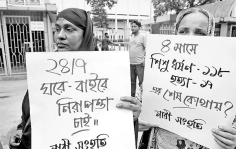 ২৪/৭
ঘরে- বাইরে
নিরাপত্তা
চাই"
নারী সংহতি
৪ মাসে
শিশু ধর্ষণ-১১৮
হত্যা-১৭
এর শেষ কোথায়?
নারী সংহতি